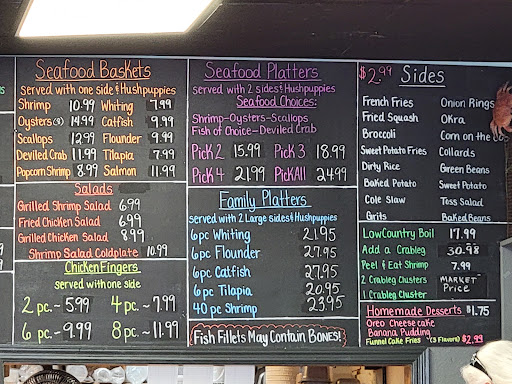 Seafood Baskets
served with one side & Hushpuppies
Shrimp 10.99 Whiting 7.99
Oysters (8) 14.99 Catfish 9.99
Scallops 12.99 Flounder 9.99
Deviled Crab 11.99 Tilapia 7.99
Popcorn Shrimp 8.99 Salmon 11.99
Salads
Grilled Shrimp Salad 6.99
Fried Chicken Salad 6.99
Grilled Chicken Salad 8.99
Shrimp Salad Coldplate 10.99
Chicken Fingers
served with one side
2 pc. ~ 5.99 4 pc. ~ 7.99
6 pc. ~ 9.99 8 pc. ~ 11.99
Seafood Platters
served with 2 sides & Hushpuppies
Seafood Choices:
Shrimp-Oysters-Scallops
Fish of Choice-Deviled Crab
Pick 2 15.99 Pick 3 18.99
Pick 4 21.99 Pick All 24.99
Family Platters
served with 2 Large sides & Hushpuppies
6pc Whiting 21.95
6pc Flounder 27.95
6pc Catfish 27.95
6pc Tilapia 20.95
40 pc Shrimp 23.95
Fish Fillets May Contain BONES!
$2.99 Sides
French Fries Onion Rings
Fried Squash Okra
Broccoli Corn on the
Sweet Potato Fries Collards
Dirty Rice Green Beans
Baked Potato Sweet Potato
Cole Slaw Toss Salad
Grits Baked Beans
Low Country Boil 17.99
Add a Crableg 30.98
Peel & Eat Shrimp 7.99
2 Crableg Clusters MARKET
1 Crableg Cluster Price
Homemade Desserts $1.75
Oreo Cheesecake
Banana Pudding
Funnel Cake Fries ~(3 Flavors) $2.99